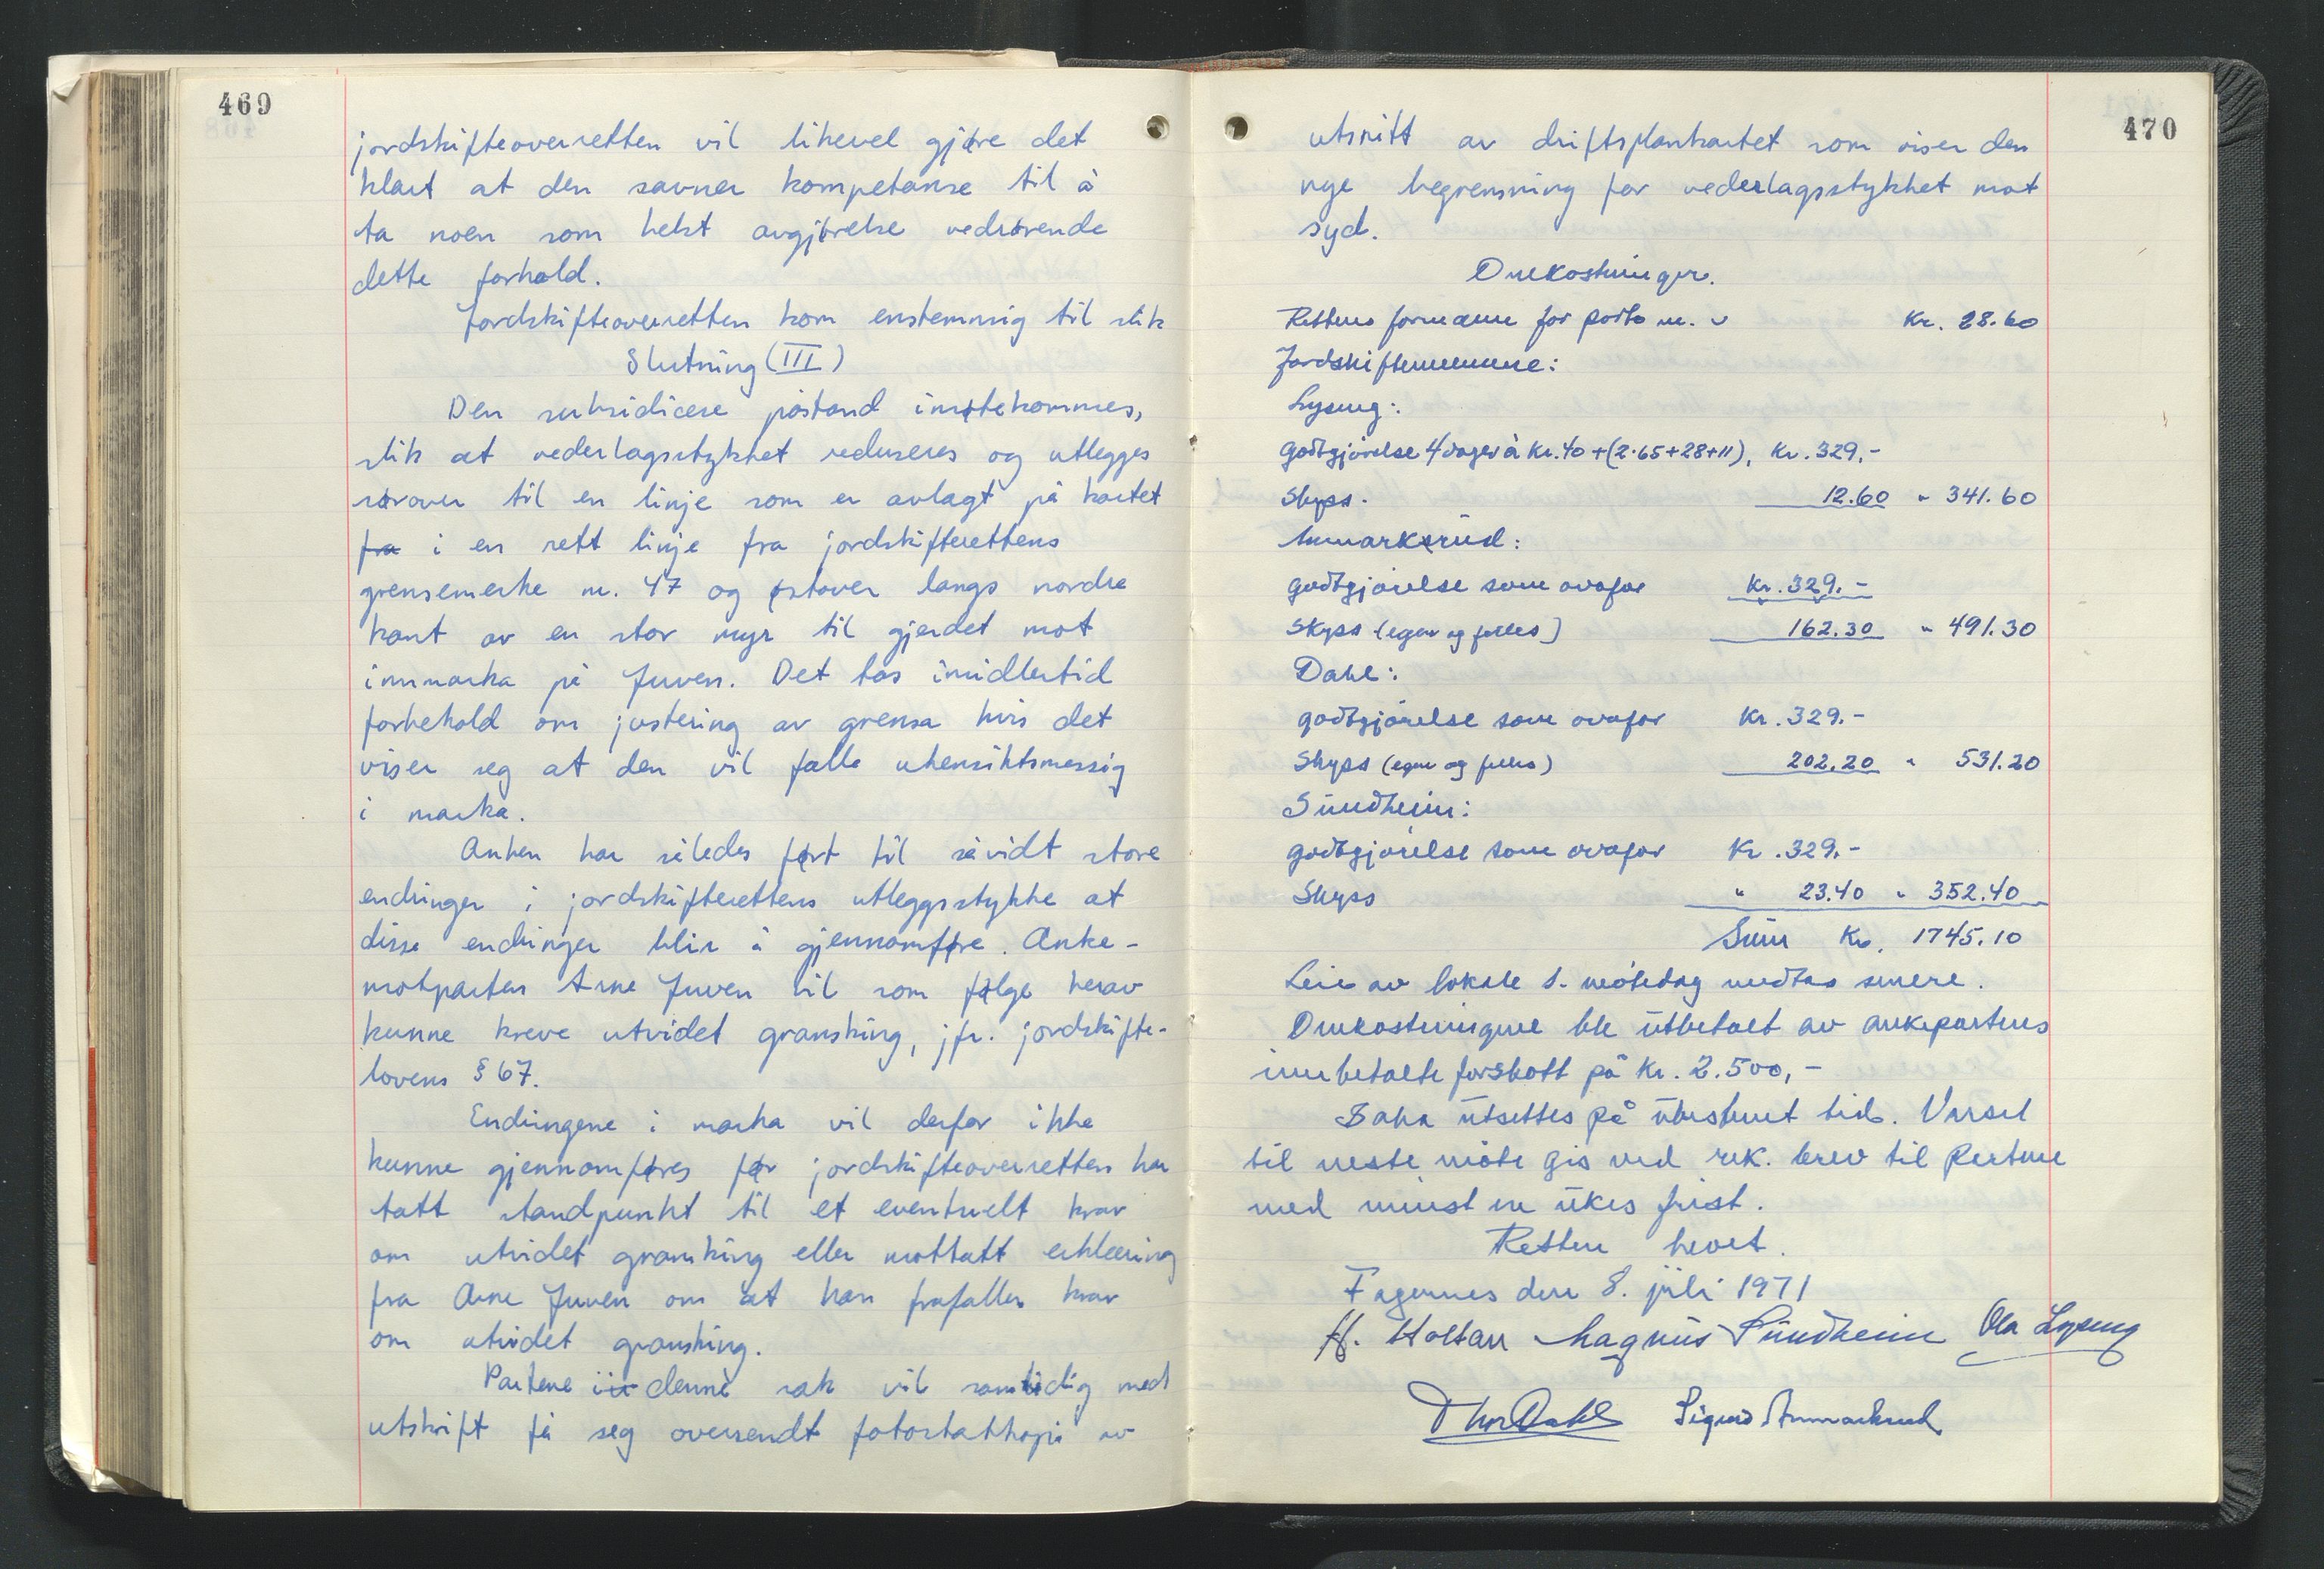 469
jordskifteoverretten vil likevel gjøre det
klart at den savner kompetanse til å
ta noen som helst avgjørelse vedrørende
dette forhold.
Jordskifteoverretten kom enstemmig til slik
Slutning (III)
Den subsidiære påstand imøtekommes,
slik at vederlagsstykket reduseres og utlegges
sørover til en linje som er avlagt på kartet
fra i en rett linje fra jordskifterettens
grensemerke nr. 47 og østover langs nordre
kant av en stor myr til gjerdet mot
innmarka på Juven. Det tas imidlertid
forbehold om justering av grensa hvis det
viser seg at den vil falle uhensiktsmessig
i marka.
Anken har således ført til såvidt store
endringer i jordskifterettens utleggsstykke at
disse endringer blir å gjennomføre. Anke-
motparten Arne Juven vil som følge herav
kunne kreve utvidet gransking, jfr. jordskifte-
lovens § 67.
Endringene i marka vil derfor ikke
kunne gjennomføres før jordskifteoverretten har
tatt standpunkt til et eventuelt krav
om utvidet gransking eller mottatt erklæring
fra Arne Juven om at han frafaller krav
om utvidet gransking.
Partene i denne sak vil samtidig med
utskrift få seg oversendt fotostatkopi av
470
utsnitt av driftsplankartet som viser den
nye begrensning for vederlagsstykket mot
syd.
Omkostninger.
Rettens formann for porto m. v Kr. 28.60
Jordskiftemennene:
Lyseng:
godtgjørelse 4 dager à kr. 40 + (2·65+28+11), Kr. 329,-
Skyss. 12.60 " 341.60
Ammarkrud:
godtgjørelse som ovafor Kr. 329.-
Skyss (egen og felles) 162.30 " 491.30
Dahl:
godtgjørelse som ovafor Kr. 329.-
Skyss (egen og felles) 202.20 " 531.20
Sundheim:
godtgjørelse som ovafor Kr. 329.-
Skyss " 23.40 " 352.40
Sum Kr. 1745.10
Leie av lokale 1. møtedag medtas senere.
Omkostningene ble utbetalt av ankepartens
innbetalte forskott på Kr. 2.500,-
Saka utsettes på ubestemt tid. Varsel
til neste møte gis ved rek. brev til partene
med minst en ukes frist.
Retten hevet.
Fagernes den 8. juli 1971
H. Holtan Magnus Sundheim Ola Lyseng
Thor Dahl Sigurd Ammarkrud